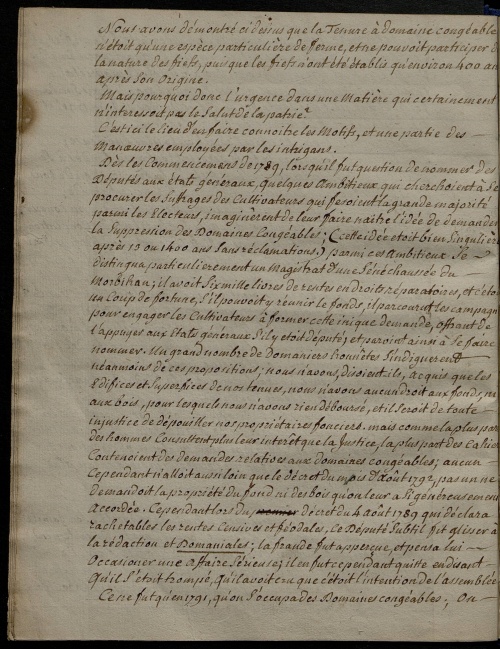 Nous avons démontré cidessus que la Tenure à domaine congéable
n'étoit qu'une espèce particulière de ferme, et ne pouvoit participer à
la nature des fiefs, puisque les fiefs n'ont été établis qu'environ 400 ans
après son Origine.
Mais pourquoi donc l'urgence dans une Matière qui certainement
n'interessoit pas le Salut de la patrie?
C'est ici le lieu d'en faire connoitre les Motifs, et une partie des
Manœuvres employées par les intrigans.
Dès les Commencemens de 1789, lorsqu'il fut question de nommer des
Députés aux états généraux, quelques Ambitieux qui cherchoient à se
procurer les Sufrages des Cultivateurs qui fesoient la grande majorité
parmi les Electeurs, imaginèrent de leur faire naitre l'idée de demander
la Suppression des Domaines Congéables; (cette idée étoit bien Singulière
après 13 ou 1400 ans Sans réclamations.) parmi ces Ambitieux Se
distingua particulièrement un Magistrat d'une Sénéchaussée du
Morbihan; il avoit Six mille livres de rentes en droits réparatoires, et c'étoit
un Coup de fortune, S'il pouvoit y réunir le fonds, il parcourut les campagnes
pour engager les Cultivateurs à former cette inique demande, offrant de
l'appuyer aux Etats généraux S'il y étoit député; et parvint ainsi à Se faire
nommer. Un grand nombre de Domaniers honnêtes S'indignerent
néanmoins de ces propositions; nous n'avons, disoient-ils, acquis que les
Edifices et Superfices de nos tenues, nous n'avons aucun droit aux fonds, ni
aux bois, pour lesquels nous n'avons rien déboursé, et il Seroit de toute
injustice de dépouiller nos propriétaires fonciers. mais comme la plus part
des hommes Consultent plus leur intérêt que la Justice, la plus part des Cahiers
Contenoient des demandes relatives aux domaines congéables; aucun
Cependant n'alloit aussi loin que le décret du mois d'Août 1792, pas un ne
demandoit la propriété du fond ni des bois qu'on leur a Si généreusement
Accordée. Cependant lors du décret du 4 Août 1789 qui déclara
rachetables les rentes Censives et féodales, Ce Député Subtil fit glisser à
la rédaction et Domaniales; la fraude fut apperçue, et pensa lui
Occasioner une affaire Sérieuse; il en fut cependant quitte en disant
qu'il S'étoit trompé, qu'il avoit cru que c'étoit l'intention de l'assemblée
Ce ne fut qu'en 1791, qu'on S'occupa des Domaines congéables; On